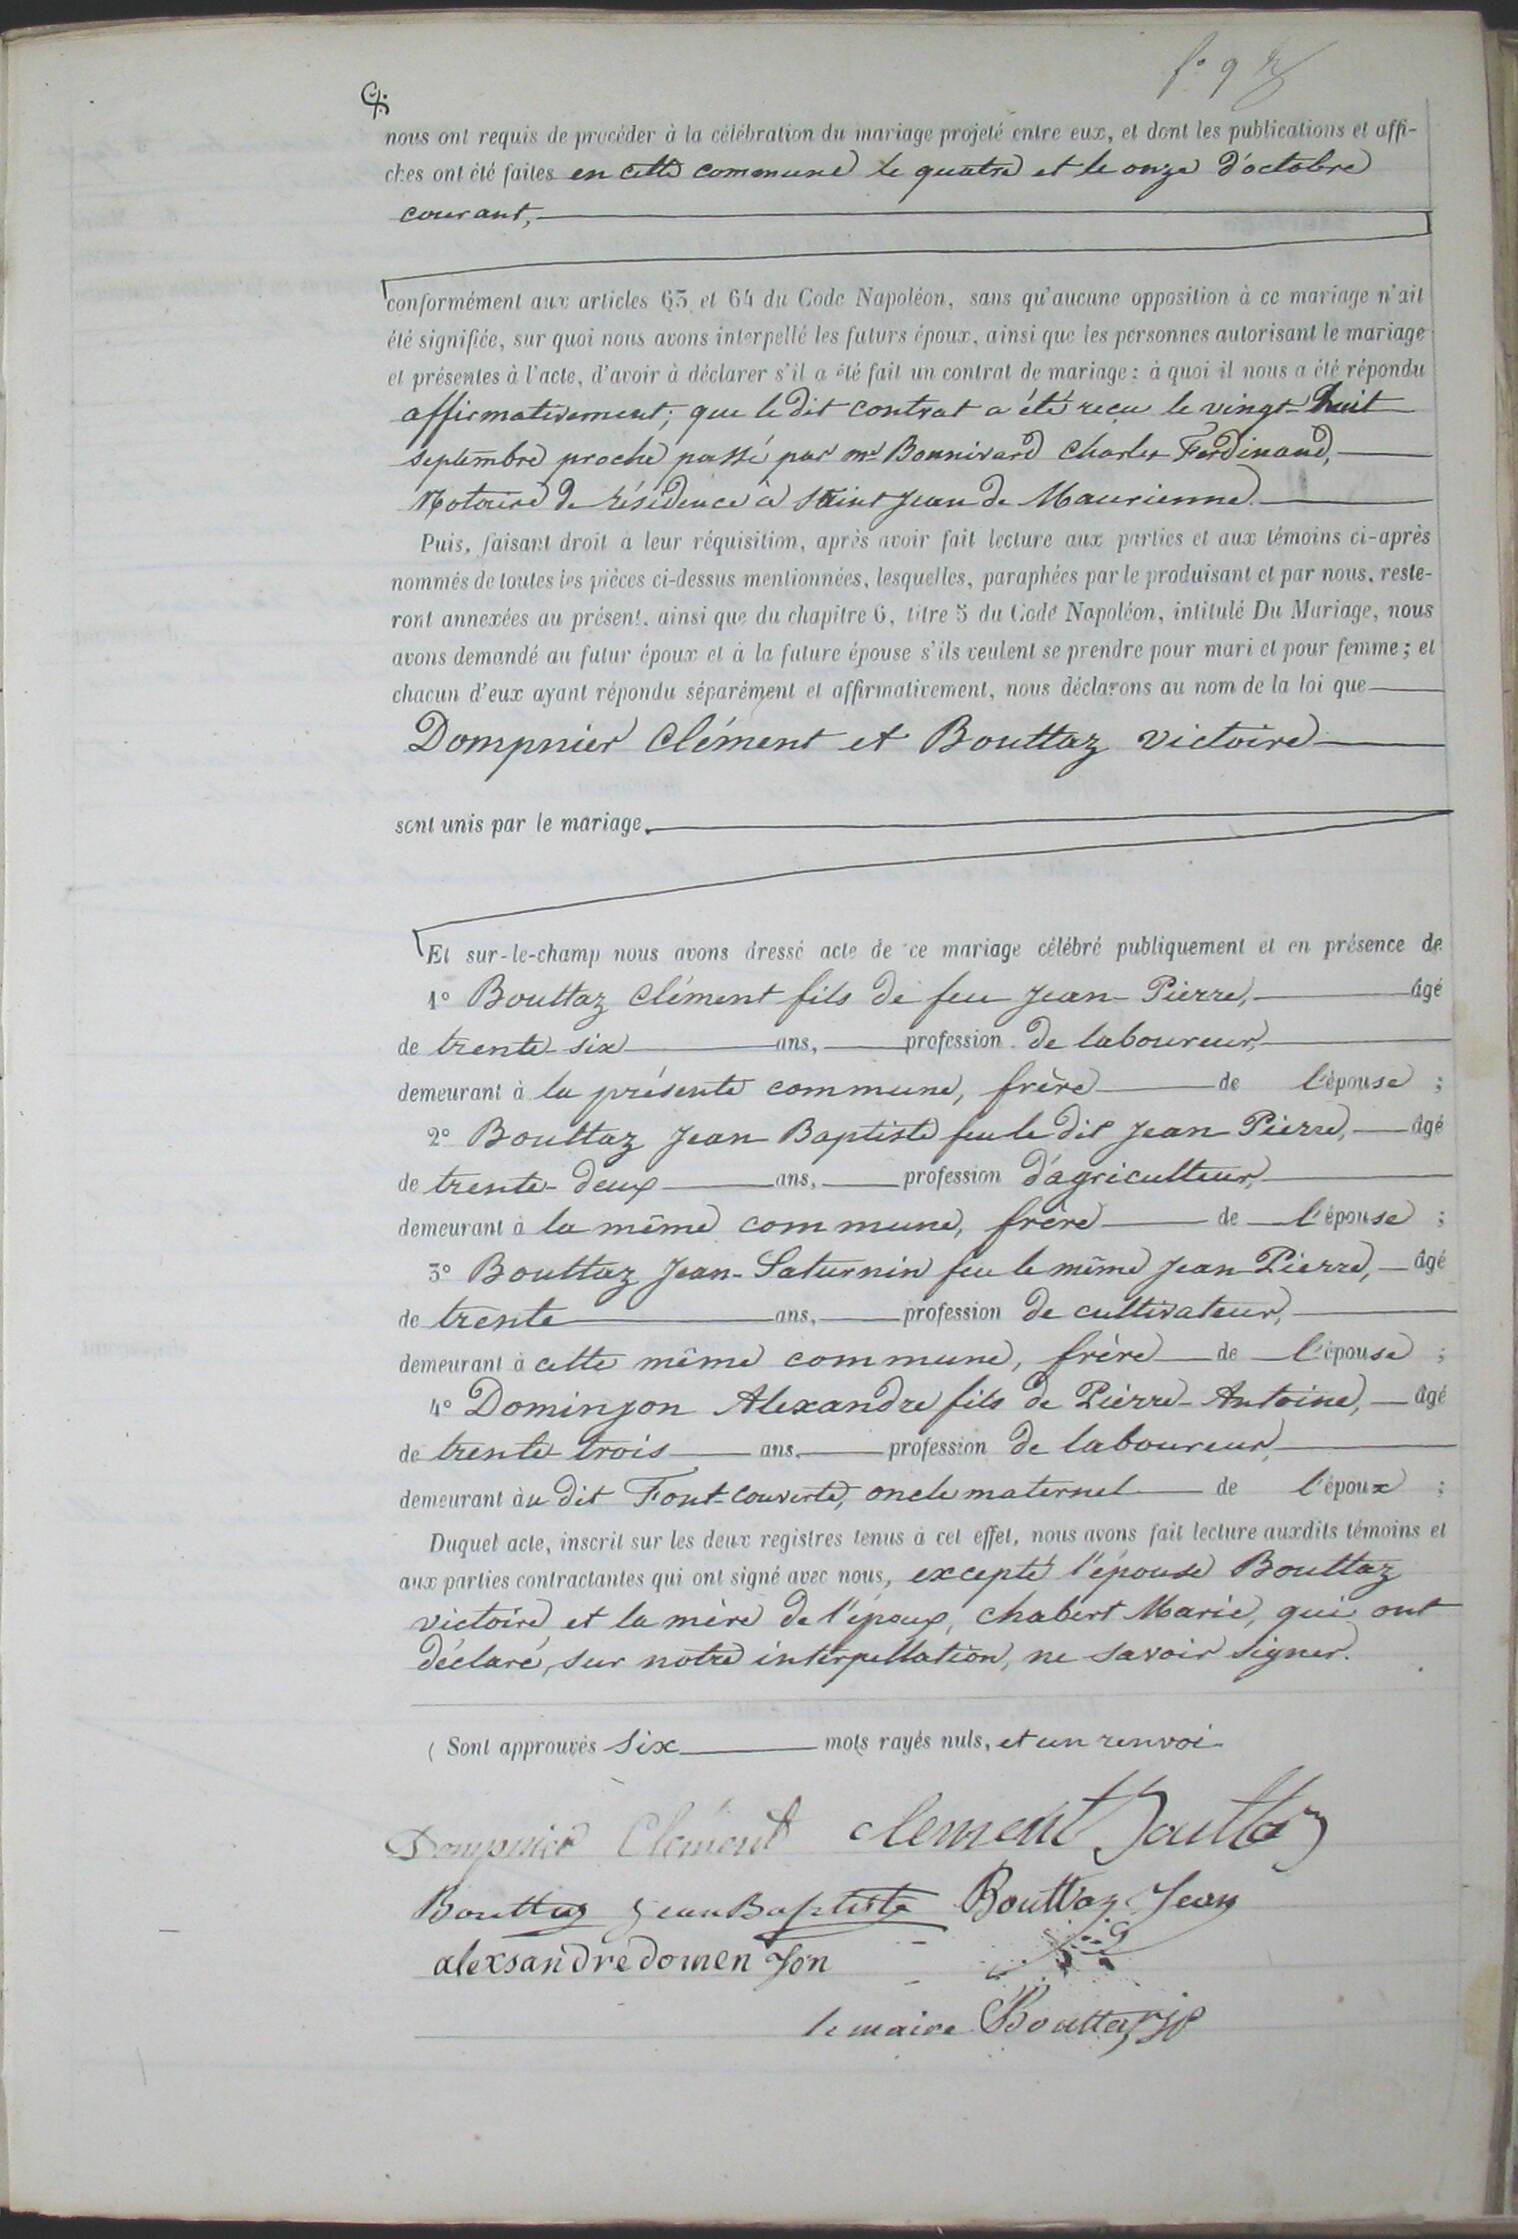 f.o 9
nous ont requis de procéder à la célébration du mariage projeté entre eux, et dont les publications et affi-
ches ont été faites en cette commune le quatre et le onze d'octobre
courant,
conformément aux articles 63 et 64 du Code Napoléon, sans qu'aucune opposition à ce mariage n'ait
été signifiée, sur quoi nous avons interpellé les futurs époux, ainsi que les personnes autorisant le mariage
et présentes à l'acte, d'avoir à déclarer s'il a été fait un contrat de mariage : à quoi il nous a été répondu
affirmativement; que le dit contrat a été reçu le vingt-huit
septembre proche passé par me Bonnivard Charles Ferdinand,
Notaire de résidence à Saint Jean de Maurienne.
Puis, faisant droit à leur réquisition, après avoir fait lecture aux parties et aux témoins ci-après
nommés de toutes les pièces ci-dessus mentionnées, lesquelles, paraphées par le produisant et par nous, reste-
ront annexées au présent, ainsi que du chapitre 6, titre 5 du Code Napoléon, intitulé Du Mariage, nous
avons demandé au futur époux et à la future épouse s'ils veulent se prendre pour mari et pour femme ; et
chacun d'eux ayant répondu séparément et affirmativement, nous déclarons au nom de la loi que
Dompnier Clément et Bouttaz victoire
sont unis par le mariage.
Et sur-le-champ nous avons dressé acte de ce mariage célébré publiquement et en présence de
1° Bouttaz Clément fils de feu Jean-Pierre, âgé
de trente-six ans, profession de laboureur,
demeurant à la présente commune, frère de l'épouse ;
2° Bouttaz Jean Baptiste feu le dit Jean Pierre, âgé
de trente-deux ans, profession d'agriculteur,
demeurant à la même commune, frère de l'épouse ;
3° Bouttaz Jean-Saturnin feu le même Jean-Pierre, âgé
de trente ans, profession de cultivateur,
demeurant à cette même commune, frère de l'épouse ;
4° Dominjon Alexandre fils de Pierre-Antoine, âgé
de trente trois ans, profession de laboureur,
demeurant àu dit Font-couverte, oncle maternel de l'époux ;
Duquel acte, inscrit sur les deux registres tenus à cet effet, nous avons fait lecture auxdits témoins et
aux parties contractantes qui ont signé avec nous, excepté l'épouse Bouttaz
victoire et la mère de l'époux, Chabert Marie, qui ont
déclaré, sur notre interpellation, ne savoir signer.
( Sont approuvés six mots rayés nuls, et un renvoi
Dompnier Clément clement Bouttaz
Bouttaz Jean Baptiste Bouttaz Jean
alexsandre domen jon
le maire Bouttaz